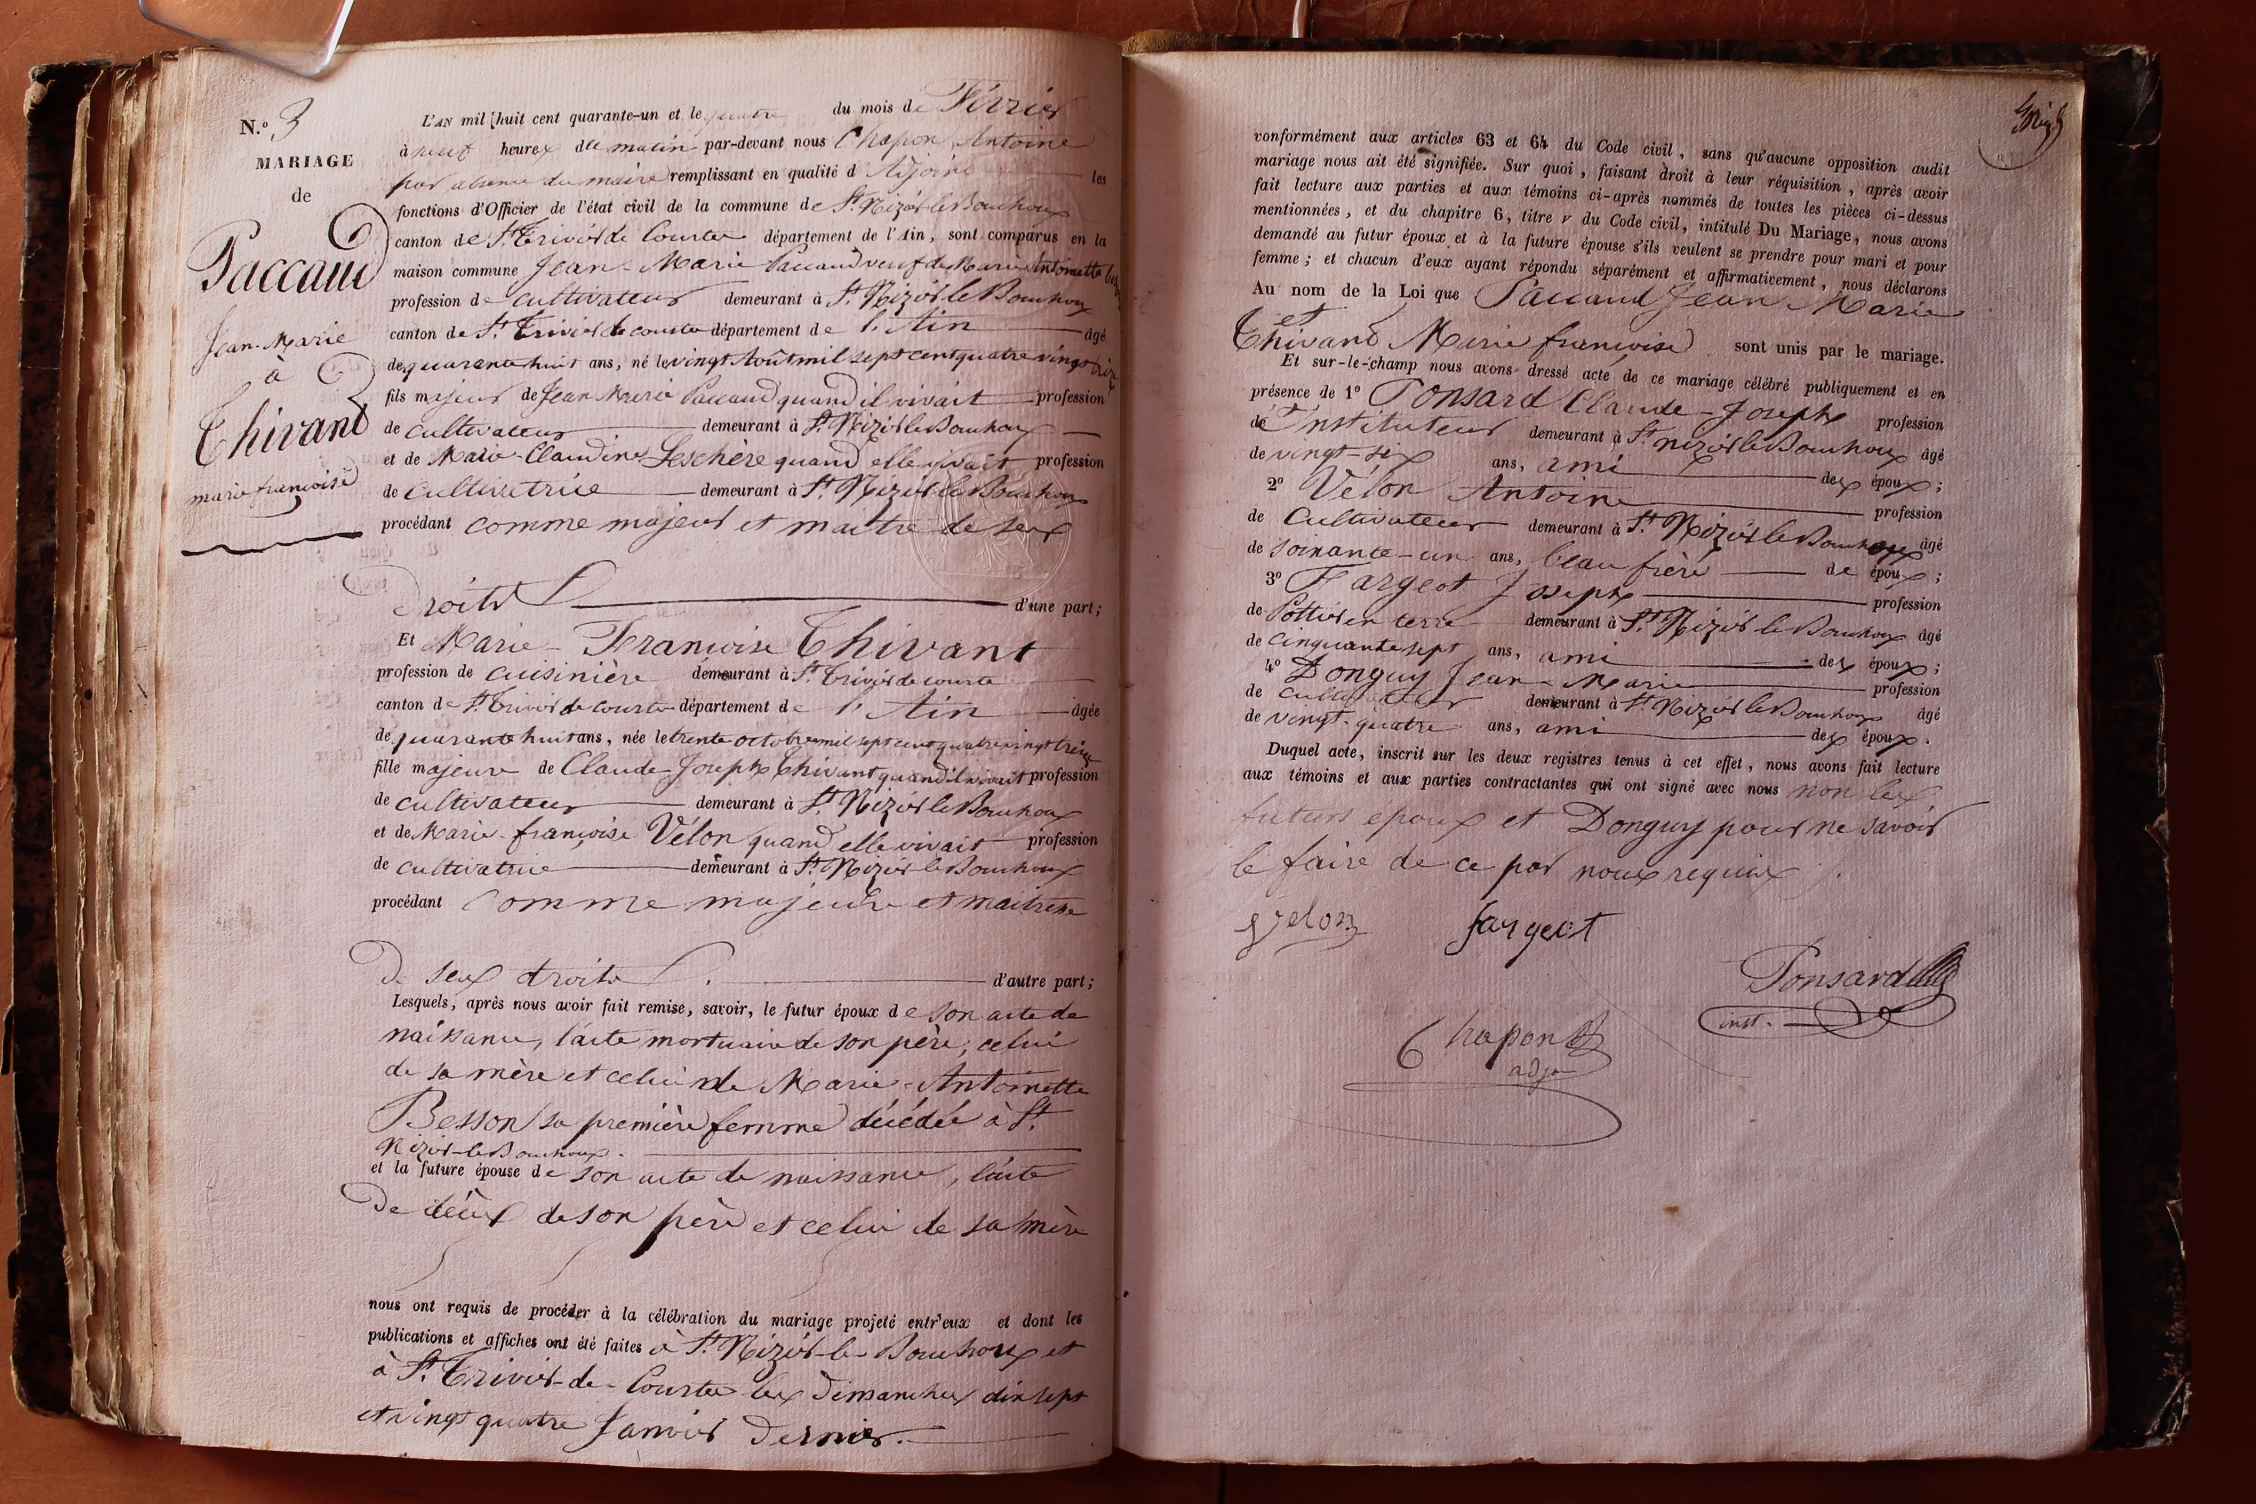 N.º 3
MARIAGE
de
Paccaud
Jean-Marie
à
Thivant
marie françoise
L'AN mil huit cent quarante-un et le quatre du mois de Février
à neuf heures du matin par-devant nous Chapon Antoine
par absence du maire remplissant en qualité d'Adjoint les
fonctions d'Officier de l'état civil de la commune de St. Nizier le Bouchoux
canton de St. Trivier de Courtes département de l'Ain, sont comparus en la
maison commune Jean-Marie Paccaud veuf de Marie Antoinette Besson
profession de cultivateur demeurant à St. Nizier le Bouchoux
canton de St. Trivier de courtes département de l'Ain âgé
de quarante huit ans, né le vingt Août mil sept cent quatre vingt
fils majeur de Jean Marie Paccaud quand il vivait profession
de cultivateur demeurant à St. Nizier le Bouchoux
et de Marie-Claudine Leschère quand elle vivait profession
de cultivatrice demeurant à St. Nizier le Bouchoux
procédant comme majeur et maître de ses
droits d'une part;
Et Marie-Françoise Thivant
profession de cuisinière demeurant à St. Trivier de courtes
canton de St. Trivier de courtes département de l'Ain âgée
de quarante huit ans, née le trente octobre mil sept cent quatre vingt treize
fille majeure de Claude-Joseph Thivant quand il vivait profession
de cultivateur demeurant à St. Nizier le Bouchoux
et de Marie-françoise Vélon quand elle vivait profession
de cultivatrice demeurant à St. Nizier le Bouchoux
procédant comme majeure et maitresse
de ses droits d'autre part;
Lesquels, après nous avoir fait remise, savoir, le futur époux de son acte de
naissance, l'acte mortuaire de son père, celui
de sa mère et celui de Marie-Antoinette
Besson sa première femme décédée à St.
Nizier-le Bouchoux.
et la future épouse de son acte de naissance, l'acte
de décès de son père et celui de sa mère
nous ont requis de procéder à la célébration du mariage projeté entr'eux et dont les
publications et affiches ont été faites à St. Nizier-le-Bouchoux et
à St. Trivier-de-Courtes les dimanches dix sept
et vingt quatre Janvier dernier.
conformément aux articles 63 et 64 du Code civil, sans qu'aucune opposition audit
mariage nous ait été signifiée. Sur quoi, faisant droit à leur réquisition, après avoir
fait lecture aux parties et aux témoins ci-après nommés de toutes les pièces ci-dessus
mentionnées, et du chapitre 6, titre v du Code civil, intitulé Du Mariage, nous avons
demandé au futur époux et à la future épouse s'ils veulent se prendre pour mari et pour
femme; et chacun d'eux ayant répondu séparément et affirmativement, nous déclarons
Au nom de la Loi que Paccaud Jean Marie
et
Thivant Marie françoise sont unis par le mariage.
Et sur-le-champ nous avons dressé acte de ce mariage célébré publiquement et en
présence de 1º Ponsard Claude-Joseph profession
de Instituteur demeurant à St. nizier le Bouchoux âgé
de vingt-six ans, ami des époux;
2º Vélon Antoine profession
de Cultivateur demeurant à St. Nizier le Bouchoux âgé
de soixante-un ans, beau frère de époux;
3º Fargeot Joseph profession
de Pottier en terre demeurant à St. Nizier le Bouchoux âgé
de cinquante sept ans, ami des époux;
4º Donguy Jean-Marie profession
de cultivateur demeurant à St. Nizier le Bouchoux âgé
de vingt-quatre ans, ami des époux.
Duquel acte, inscrit sur les deux registres tenus à cet effet, nous avons fait lecture
aux témoins et aux parties contractantes qui ont signé avec nous non les
futurs époux et Donguy pour ne savoir
le faire de ce par nous requis.
Velon
fargeot
Ponsard
inst.
Chapon
adj.